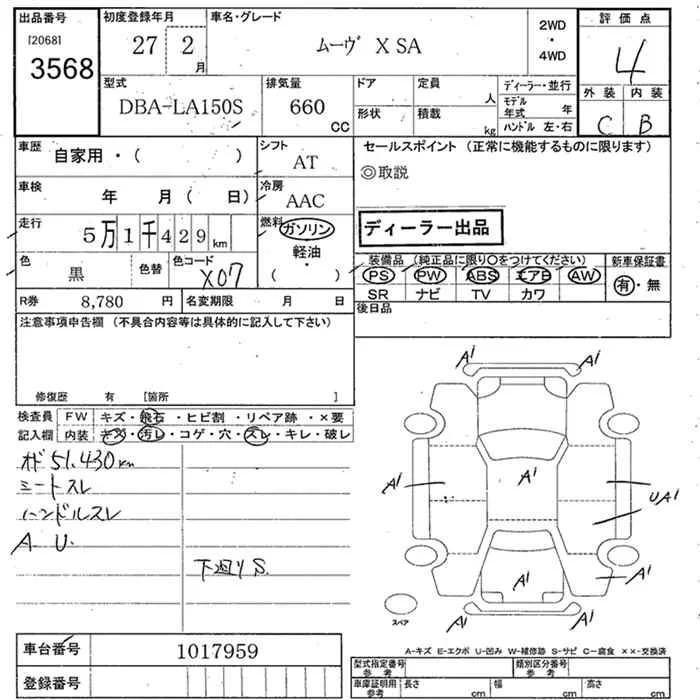 出品番号 [2068] 3568
初度登録年月 27 2月
車名・グレード ムーヴ X SA
2WD ・ 4WD
評価点 4
外装 C 内装 B
型式 DBA-LA150S
排気量 660 CC
ドア 形状
定員 人
積載 kg
ディーラー・並行
モデル年式 年
ハンドル 左・右
車歴 自家用・( )
シフト AT
車検 年 月(日)
冷房 AAC
走行 5万1千429km
燃料 ガソリン 軽油・( )
色 黒 色替 色コード X07
R券 8,780 円 名変期限 月 日
セールスポイント (正常に機能するものに限ります)
◎取説
ディーラー出品
装備品 (純正品に限り○をつけてください)
PS PW ABS エアB AW
SR ナビ TV カワ
新車保証書 有・無
後日品
注意事項申告欄 (不具合内容等は具体的に記入して下さい)
修復歴 有 [箇所 ]
検査員記入欄
FW キズ・飛石・ヒビ割・リペア跡・×要
内装 キズ・汚レ・コゲ・穴・スレ・キレ・破レ
51,430km
シートスレ
ハンドルスレ
A U.
下廻りS.
A1 A1
A1
A1 UA1
A1 A1
A1 A1
スペア
A-キズ E-エクボ U-凹み W-補修跡 S-サビ C-腐食 ××-交換済
車台番号 1017959
登録番号
型式指定番号 参考
類別区分番号 参考
車庫証明用 参考 長さ cm 幅 cm 高さ cm